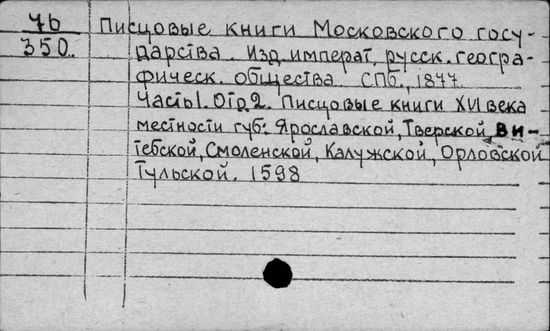 76 Писцовые книги Московского госу-
350. дарства. Изд. императ, русск. геогра-
фическ. общества СПб., 1877.
Часть I. Отд. 2. Писцовые книги XVI века
местности губ: Ярославской, Тверской, Ви-
тебской, Смоленской, Калужской, Орловской
Тульской. 1598